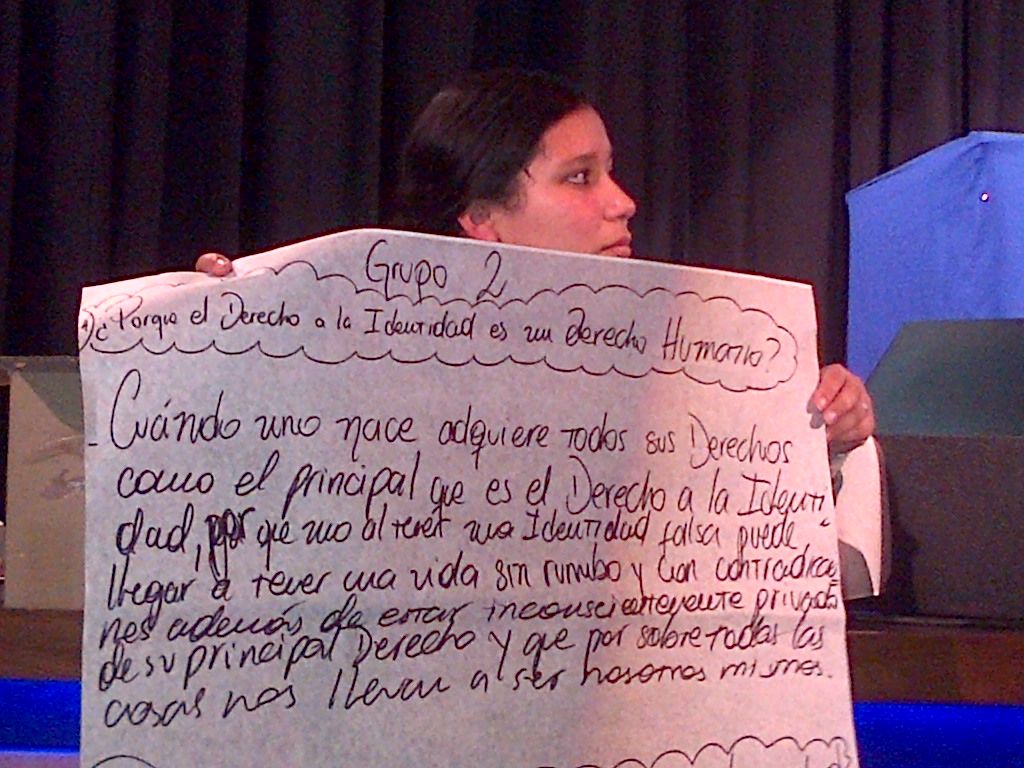 Grupo 2
1) ¿Porque el Derecho a la Identidad es un derecho Humano?
- Cuándo uno nace adquiere todos sus Derechos
como el principal que es el Derecho a la Identi-
dad, por que uno al tener una Identidad falsa puede
llegar a tener una vida sin rumbo y con contradiccio
nes además de estar inconscientemente privado
de su principal Derecho y que por sobre todas las
cosas nos llevan a ser nosotros mismos.